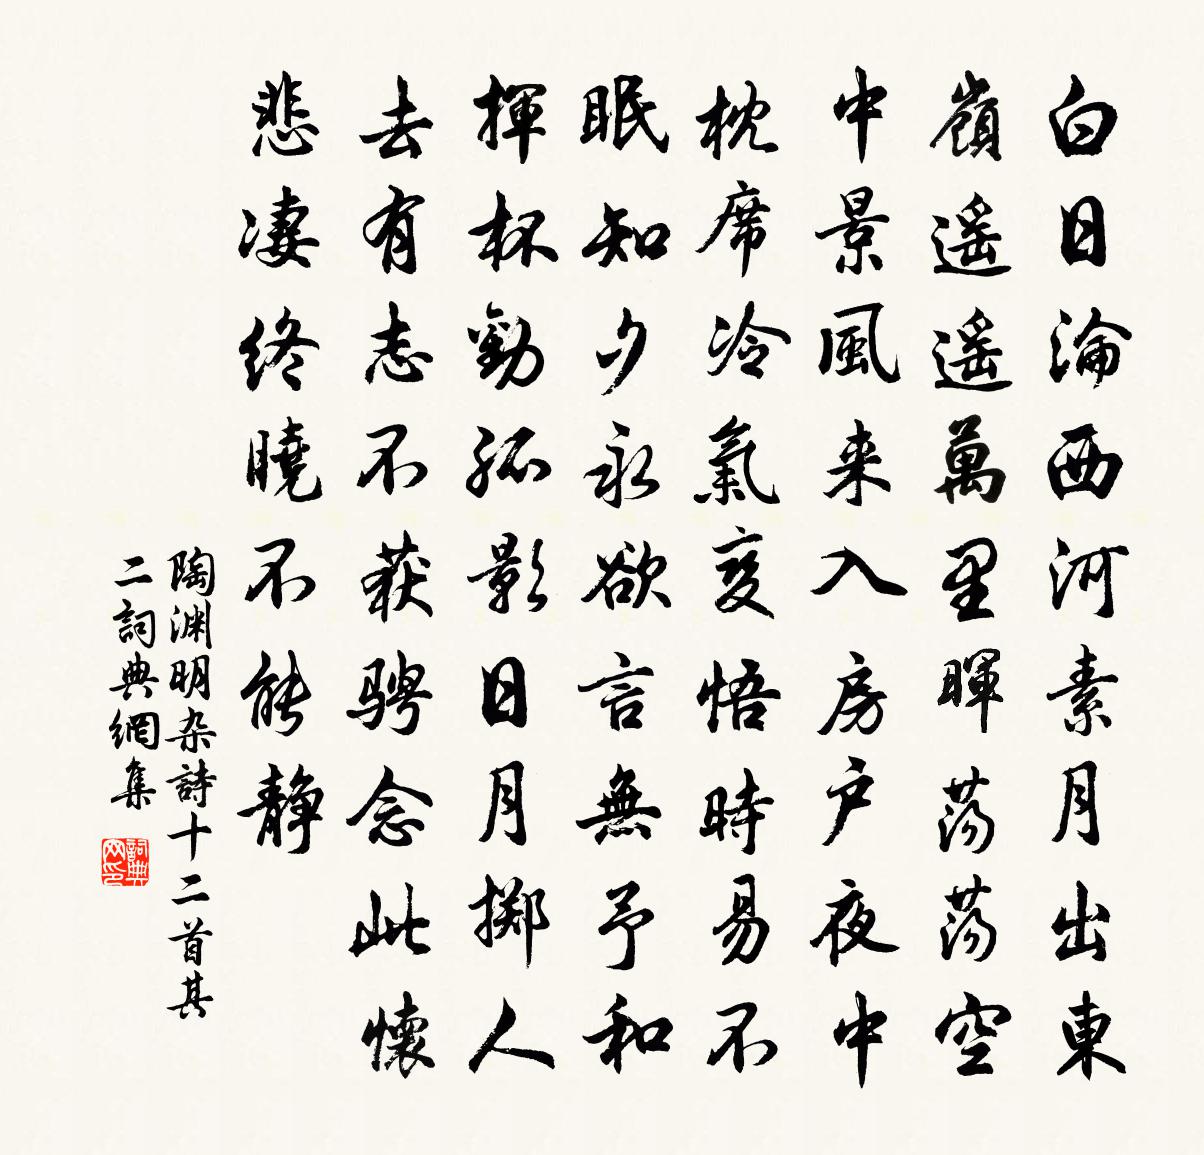 白日淪西河素月出東
嶺遥遥萬里暉荡荡空
中景風来入房户夜中
枕席冷氣变悟時易不
眠知夕永欲言無予和
揮杯勸孤影日月掷人
去有志不获骋念此懷
悲凄终曉不能静
陶渊明杂詩十二首其
二詞典網集
詞典
网印